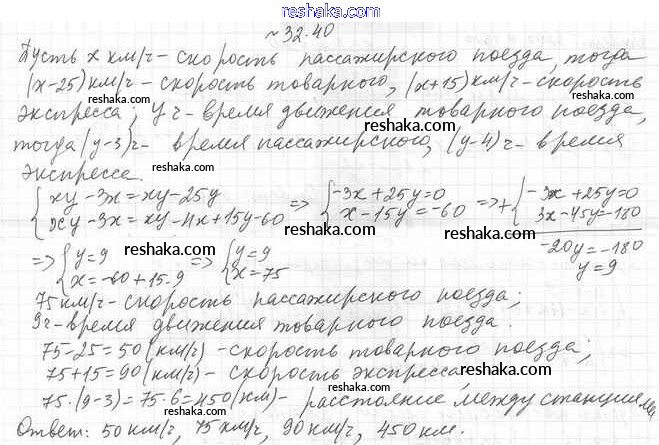 reshaka.com
№32.40
Пусть x км/ч - скорость пассажирского поезда, тогда
(x-25) км/ч - скорость товарного, (x+15) км/ч - скорость
reshaka.com reshaka.com
экспресса; y ч - время движения товарного поезда,
reshaka.com
тогда (y-3) ч - время пассажирского, (y-4) ч - время
экспресса. reshaka.com
{xy-3x=xy-25y
xy-3x=xy-4x+15y-60 => {-3x+25y=0
x-15y=-60 => + {-3x+25y=0
3x-45y=-180
reshaka.com reshaka.com
-20y=-180
y=9
=> {y=9
x=-60+15·9 => {y=9
x=75
reshaka.com reshaka.com
75 км/ч - скорость пассажирского поезда;
9ч - время движения товарного поезда.
reshaka.com
75-25=50 (км/ч) - скорость товарного поезда;
75+15=90 (км/ч) - скорость экспресса
reshaka.com reshaka.com
75·(9-3)=75·6=450 (км) - расстояние между станциями
Ответ: 50 км/ч, 75 км/ч, 90 км/ч, 450 км.
reshaka.com reshaka.com